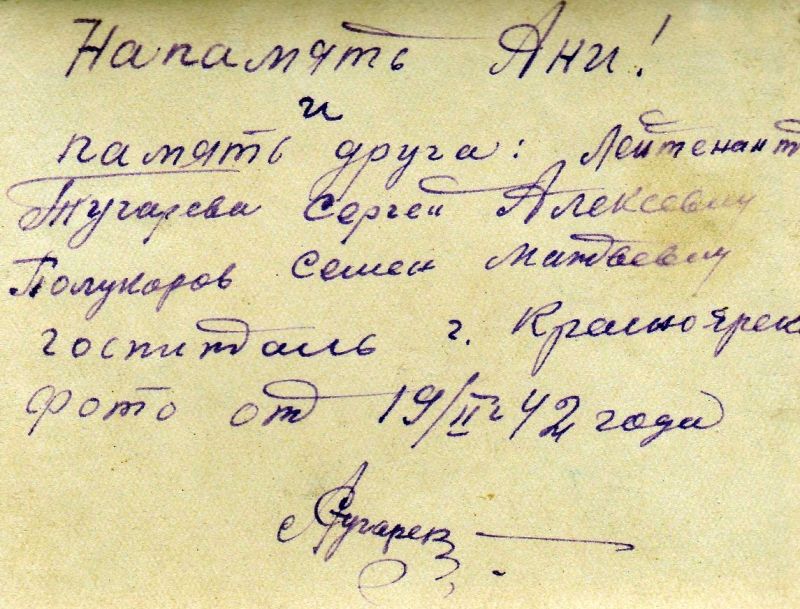 На память Ани!
и
память друга: Лейтенант
Тугарева Сергей Алексеевич
Полукаров Семен Матвеевич
госпиталь г. Красноярск
Фото от 19/II-42 года
Тугарев